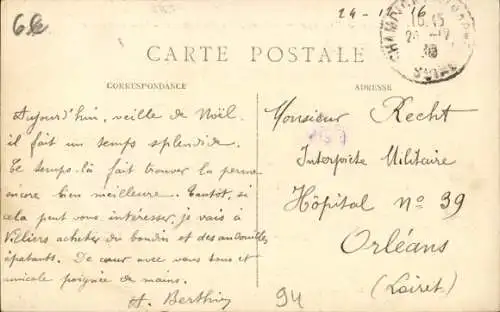 24-12-16
CARTE POSTALE
CORRESPONDANCE
Aujourd'hui, veille de Noël,
il fait un temps splendide.
Ce temps-là fait trouver la perme
encore bien meilleure. Tantôt, si
cela peut vous intéresser, je vais à
Villiers acheter du boudin et des andouilles
épatants. De cœur avec vous tous et
amicale poignée de mains.
A. Berthin
ADRESSE
Monsieur Recht
Interprète Militaire
Hôpital No 39
Orléans
(Loiret)
94